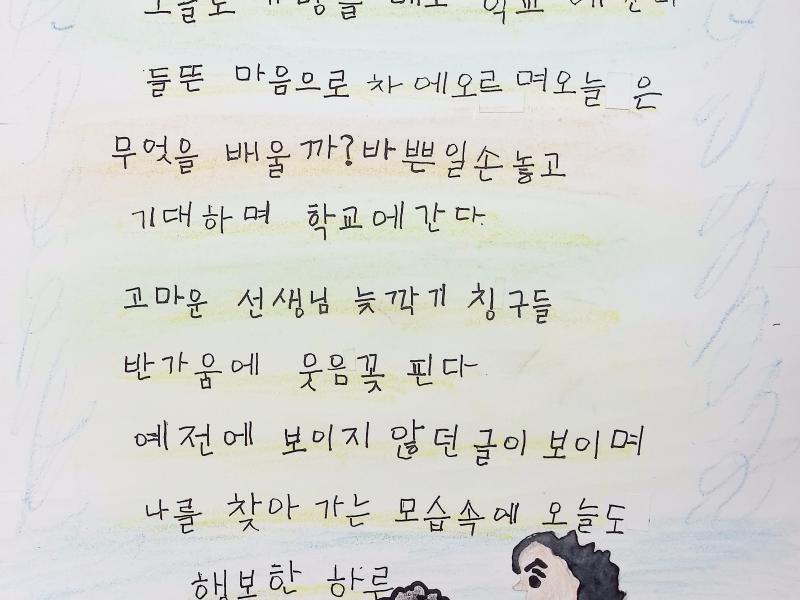 오늘도 가방을 메고 학교에 간다
들뜬 마음으로 차에오르며오늘 은
무엇을 배울까?바쁜일손놓고
기대하며 학교에간다.
고마운 선생님 늦깍기 칭구들
반가움에 웃음꽃 핀다
예전에 보이지 않던 글이 보이며
나를 찾아 가는 모습속에 오늘도
행보한 하루